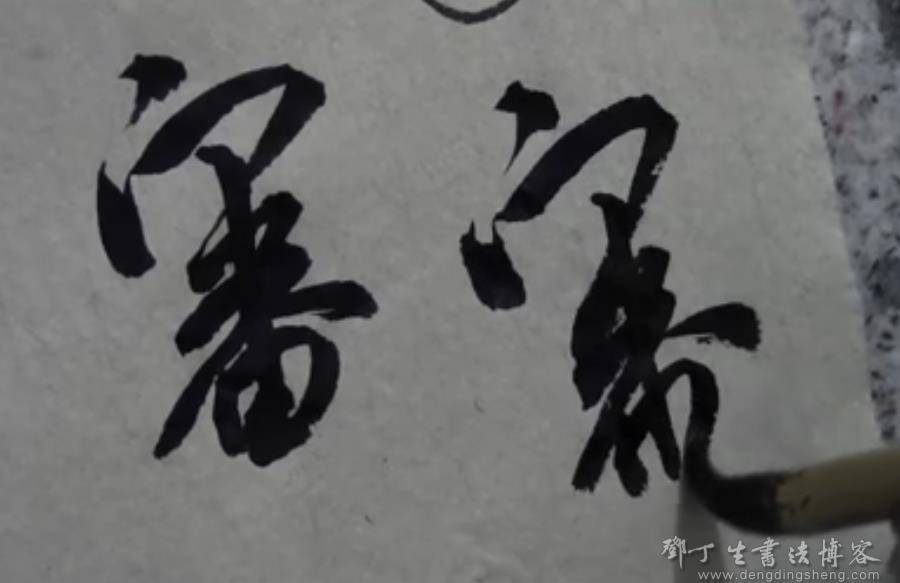 審 審
鄧丁生書法博客
www.dengdingsheng.com